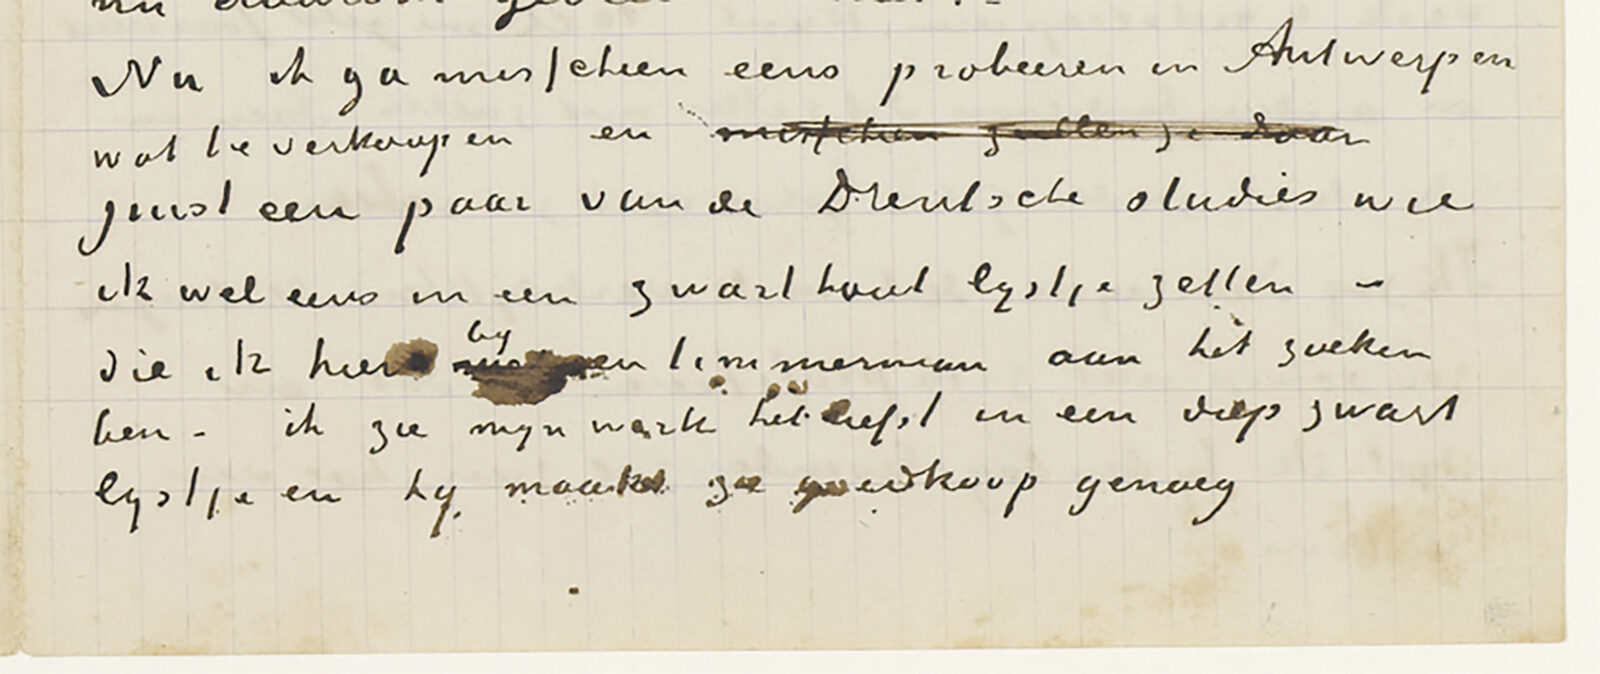 Nu ik ga misschien eens probeeren in Antwerpen
wat te verkoopen en misschien zullen ze daar
juist een paar van de Drentsche studies wie
ik wel eens in een zwart hout lystje zetten –
die ik hier by een timmerman aan het zoeken
ben – ik zie myn werk het liefst in een diep zwart
lystje en hy maakt ze goedkoop genoeg